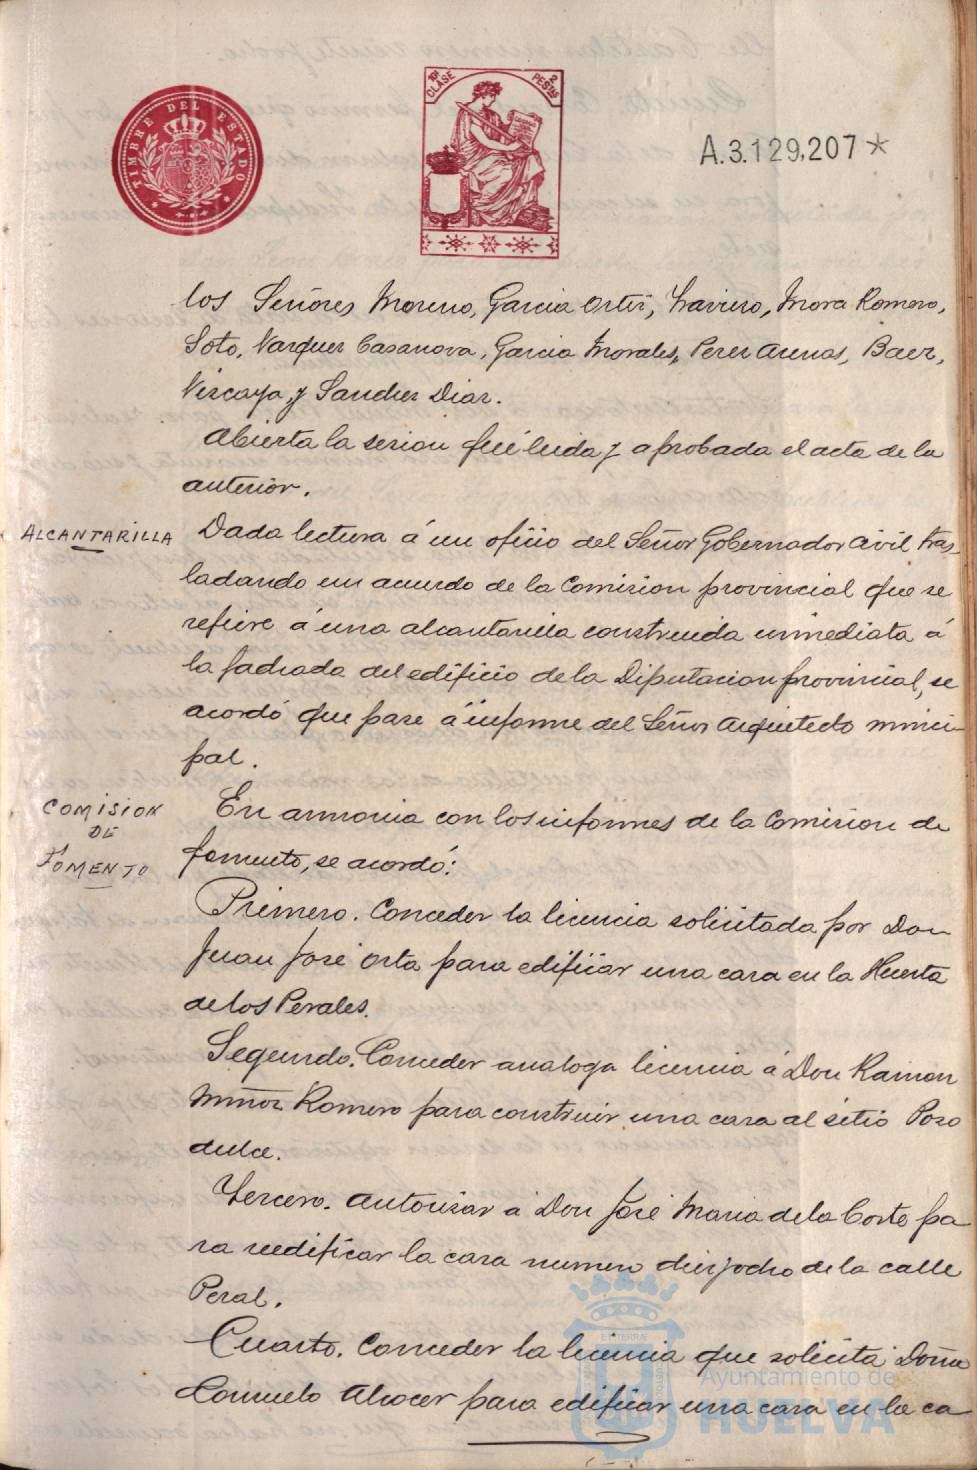 TIMBRE DEL ESTADO
10ª CLASE
2 PESTAS
A.3.129,207*
los Señores Moreno, Garcia Ortiz, Traviero, Mora Romero,
Soto, Vazquez Casanova, Garcia Morales, Perez Arenas, Baez,
Vizcaya, y Sanchez Diaz.
Abierta la sesion fué leida y aprobada el acta de la
anterior.
ALCANTARILLA
Dada lectura á un oficio del Señor Gobernador Civil tras-
ladando un acuerdo de la Comision provincial que se
refiere á una alcantarilla construida inmediata á
la fachada del edificio de la Diputacion provincial, se
acordó que pase á informe del Señor Arquitecto munici-
pal.
COMISION
DE
FOMENTO
En armonia con los informes de la Comision de
fomento, se acordó:
Primero. Conceder la licencia solicitada por Don
Juan José Orta para edificar una casa en la Huerta
de los Perales.
Segundo. Conceder analoga licencia á Don Ramon
Muñoz Romero para construir una casa al sitio Pozo
dulce.
Tercero. Autorizar á Don José Maria de la Corte pa
ra reedificar la casa numero diez y ocho de la calle
Peral.
Cuarto. Conceder la licencia que solicita Doña
Consuelo Alcocer para edificar una casa en la ca
Ayuntamiento de
HUELVA